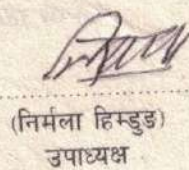 (निर्मला हिम्डुङ)
उपाध्यक्ष